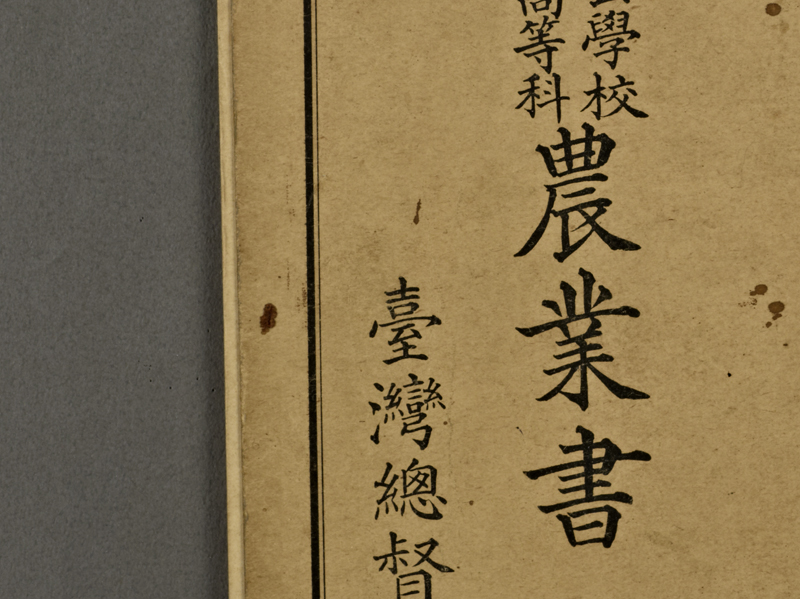 學校
等科
農業書
臺灣總督